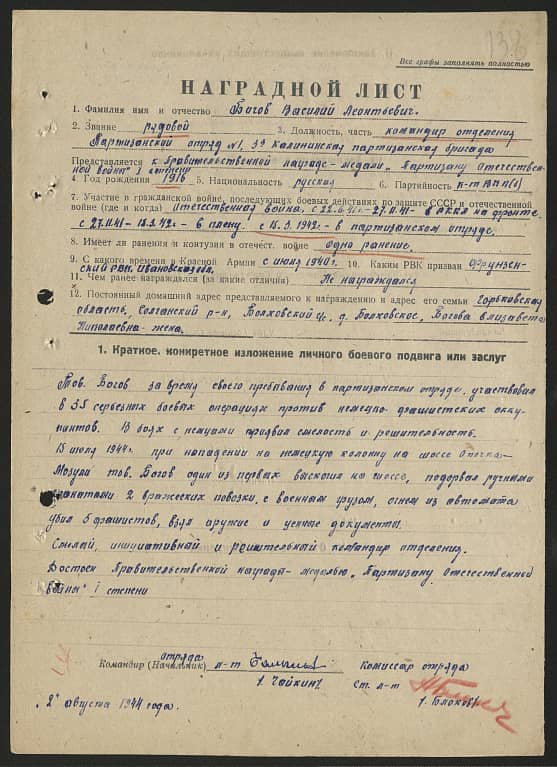 138
Все графы заполнять полностью
НАГРАДНОЙ ЛИСТ
1. Фамилия имя и отчество Богов Василий Леонтьевич.
2. Звание рядовой 3. Должность, часть командир отделения
Партизанский отряд №1, 3й Калининская партизанская бригада
Представляется к Правительственной награде - медали „Партизану Отечествен-
ной войны" I степени
4. Год рождения 1916 5. Национальность русский 6. Партийность к-т ВКП(б)
7. Участие в гражданской войне, последующих боевых действиях по защите СССР и отечественной
войне (где и когда) Отечественная война, с 22.6.41-27.11.41- в РККА на фронте
с 27.11.41-15.3.42г.- в плену. с 15.3.1942г.- в партизанском отряде.
8. Имеет ли ранения и контузии в отечест. войне одно ранение.
9. С какого времени в Красной Армии с июля 1940г. 10. Каким РВК призван Фрунзен-
ский РВК, Ивановская обл.
11. Чем ранее награждался (за какие отличия) Не награждался
12. Постоянный домашний адрес представляемого к награждению и адрес его семьи Горьковская
область, Салганский р-н, Болховский с/с, д. Болховское, Богова Елизавета
Николаевна - жена.
1. Краткое, конкретное изложение личного боевого подвига или заслуг
Тов. Богов за время своего пребывания в партизанском отряде, участвовал
в 35 серьезных боевых операциях против немецко-фашистских окку-
пантов. В боях с немцами проявил смелость и решительность.
15 июля 1944г. при нападении на немецкую колонну на шоссе Опочка-
Мозули тов. Богов один из первых выскочил на шоссе, подорвал ручными
гранатами 2 вражеских повозки с военным грузом, огнем из автомата
убил 5 фашистов, взял оружие и ценные документы.
Смелый, инициативный и решительный командир отделения.
Достоен Правительственной награды - медалью „Партизану Отечественной
войны" I степени
Командир (Начальник) отряда л-т
/Чайкин/
Комиссар отряда
Ст. л-т
/Блоков/
„2" августа 1944 года.